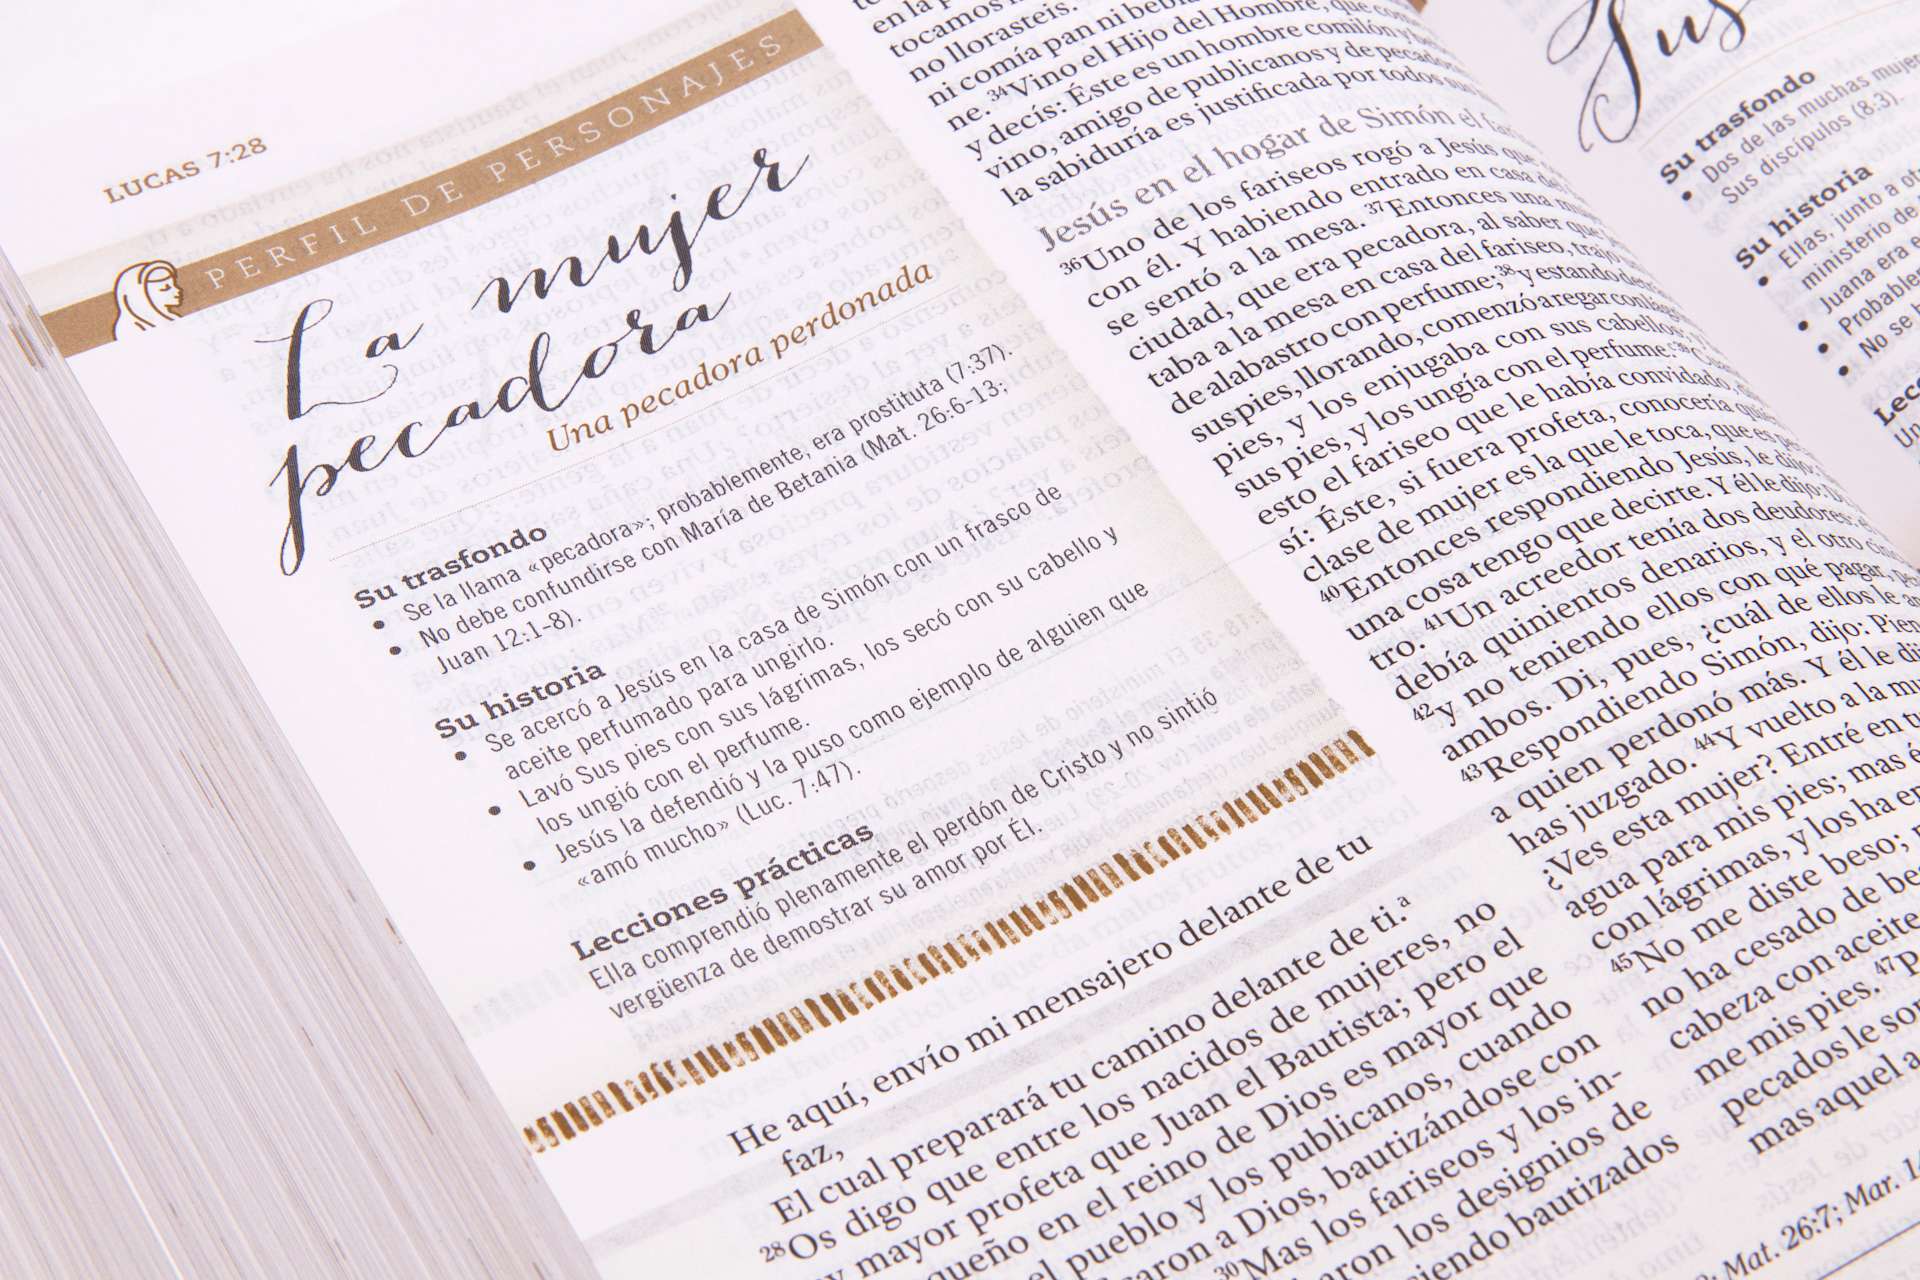 LUCAS 7:28
PERFIL DE PERSONAJES
La mujer
pecadora
Una pecadora perdonada
Su trasfondo
• Se la llama «pecadora»; probablemente, era prostituta (7:37).
• No debe confundirse con María de Betania (Mat. 26:6-13;
Juan 12:1-8).
Su historia
• Se acercó a Jesús en la casa de Simón con un frasco de
aceite perfumado para ungirlo.
• Lavó Sus pies con sus lágrimas, los secó con su cabello y
los ungió con el perfume.
• Jesús la defendió y la puso como ejemplo de alguien que
«amó mucho» (Luc. 7:47).
Lecciones prácticas
Ella comprendió plenamente el perdón de Cristo y no sintió
vergüenza de demostrar su amor por Él.
He aquí, envío mi mensajero delante de tu
faz,
El cual preparará tu camino delante de ti.ª
28Os digo que entre los nacidos de mujeres, no
mayor profeta que Juan el Bautista; pero el
en el reino de Dios es mayor que
el pueblo y los publicanos, cuando
a Dios, bautizándose con
30Mas los fariseos y los in-
los designios de
bautizados
en la
tocamos
no llorasteis.
ni comía pan ni
ne. 34Vino el Hijo del Hombre, que
y decís: Éste es un hombre comilón y
vino, amigo de publicanos y de
la sabiduría es justificada por todos sus
Jesús en el hogar de Simón el
36Uno de los fariseos rogó a Jesús que
con él. Y habiendo entrado en casa del
se sentó a la mesa. 37Entonces una
ciudad, que era pecadora, al saber que
taba a la mesa en casa del fariseo, trajo
de alabastro con perfume; 38y estando detrás
sus pies, llorando, comenzó a regar con
pies, y los enjugaba con sus cabellos; y
sus pies, y los ungía con el perfume. 39
esto el fariseo que le había convidado,
sí: Éste, si fuera profeta, conocería
clase de mujer es la que le toca, que es
40Entonces respondiendo Jesús, le dijo:
una cosa tengo que decirte. Y él le dijo:
tro. 41Un acreedor tenía dos deudores:
debía quinientos denarios, y el otro
42y no teniendo ellos con qué pagar,
ambos. Di, pues, ¿cuál de ellos le
43Respondiendo Simón, dijo:
a quien perdonó más. Y él le
has juzgado. 44Y vuelto a la
¿Ves esta mujer? Entré en
agua para mis pies; mas
con lágrimas, y los ha
45No me diste beso;
no ha cesado de
cabeza con aceite
me mis pies. 47
pecados le
mas aquel
Mat. 26:7; Mar.
Su trasfondo
• Dos de las muchas
Sus discípulos (8:3).
Su historia
• Ellas, junto a
ministerio de
• Juana era
•
• No se